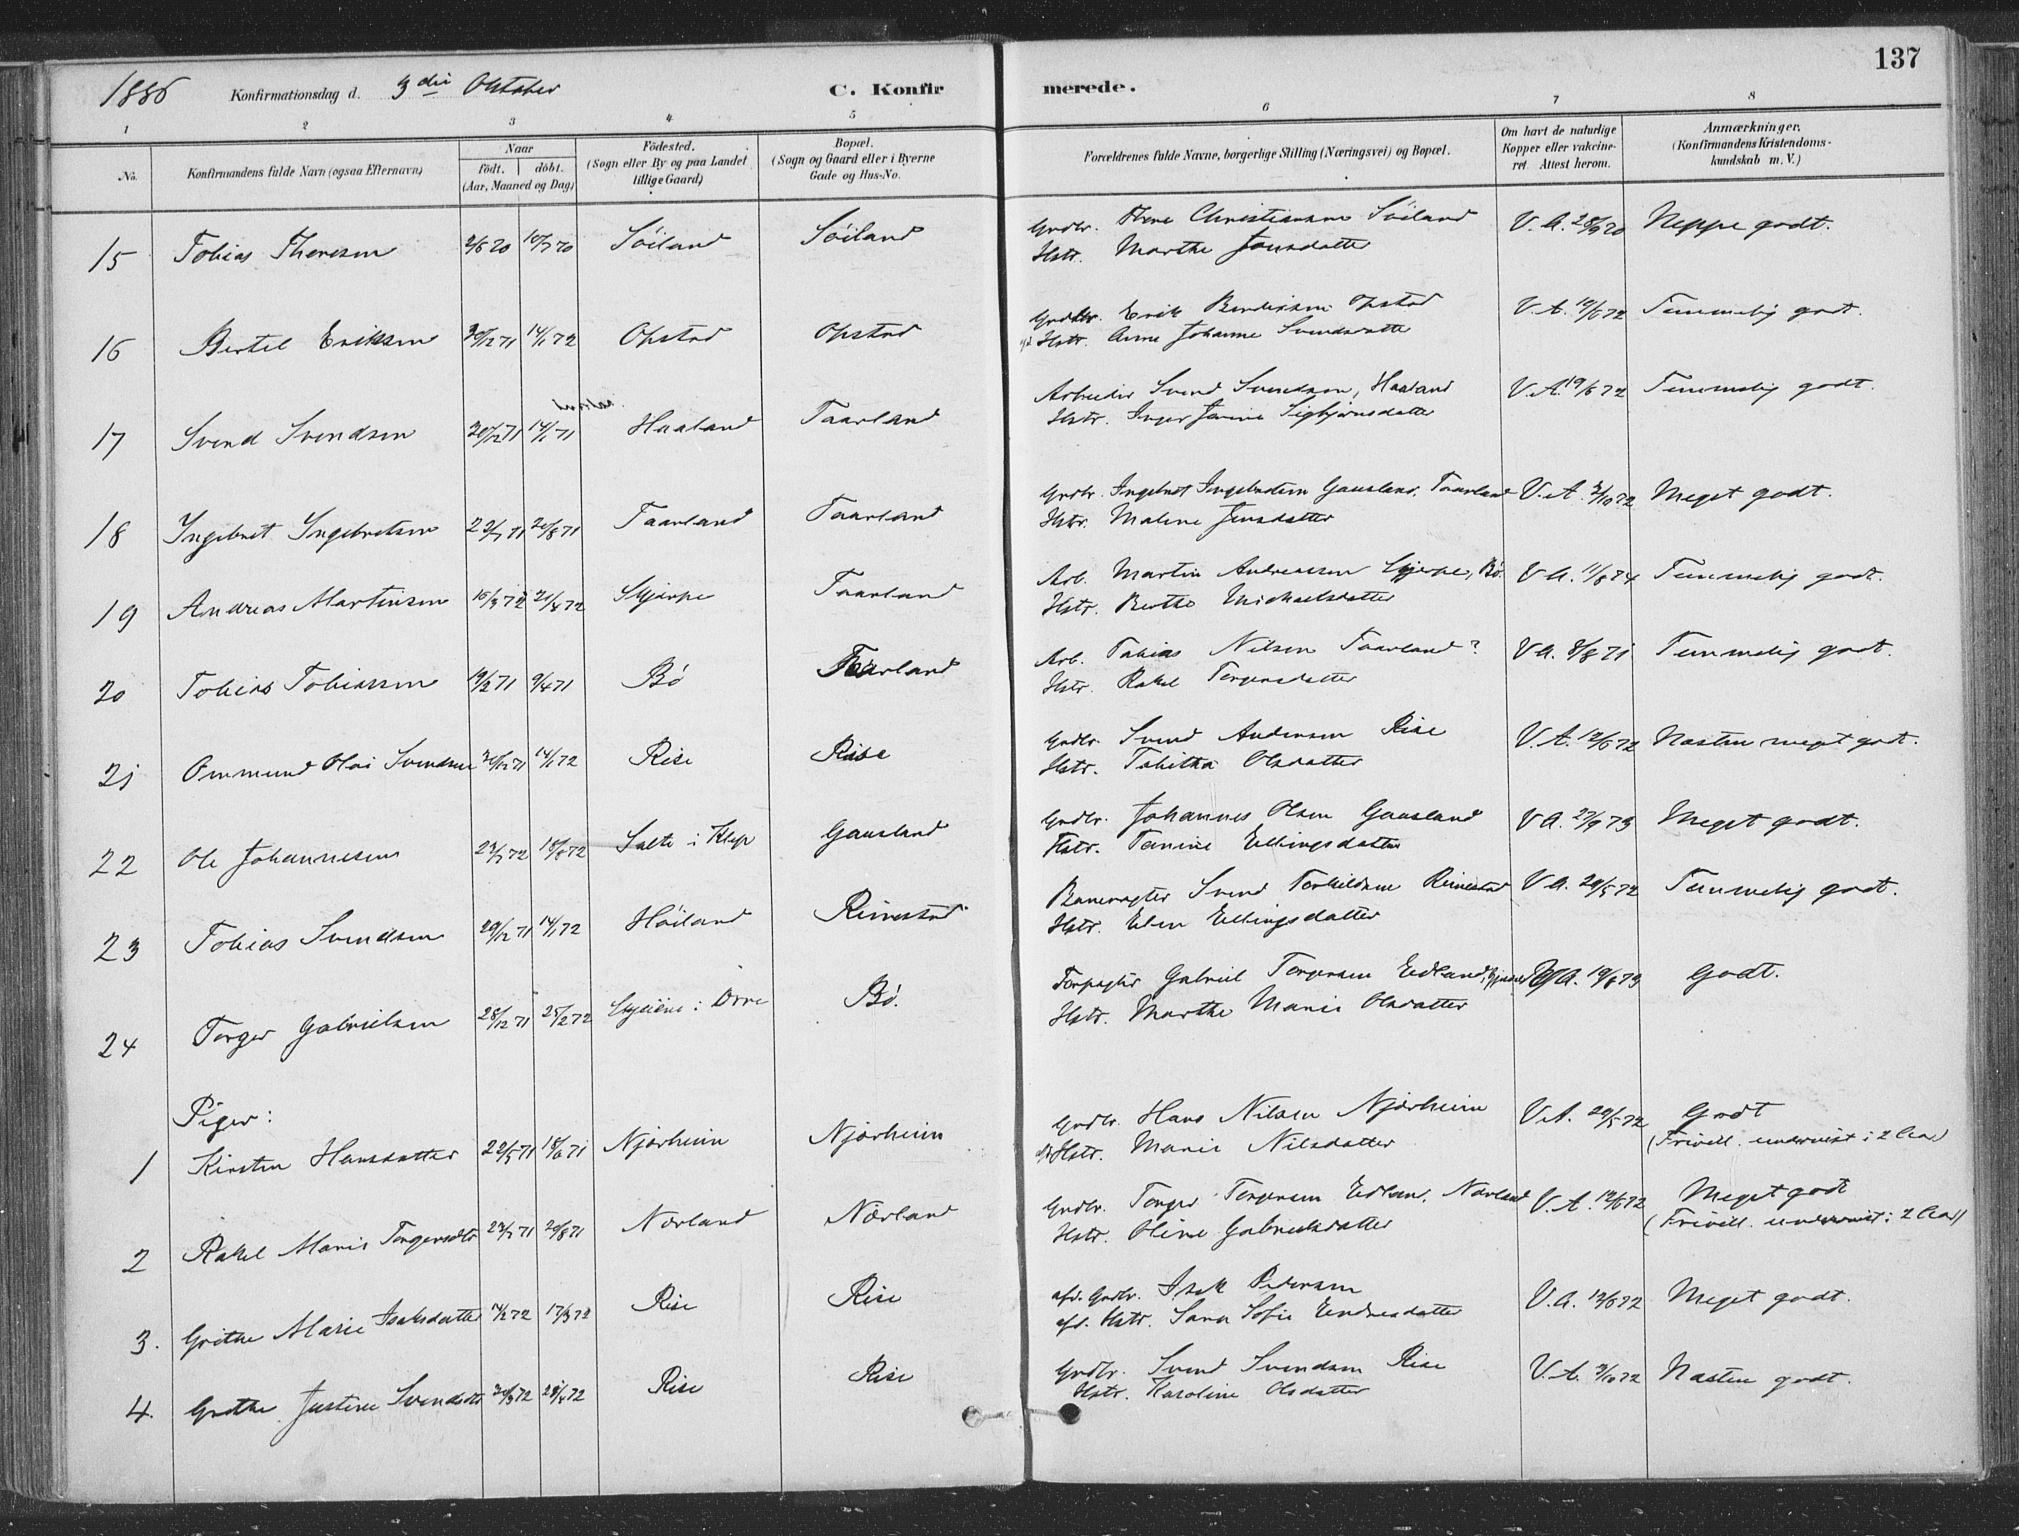 137
1886 Konfirmationsdag d. 3die Oktober C. Konfirmerede.
1 2 3 4 5 6 7 8
No.
Konfirmandens fulde Navn (ogsaa Efternavn)
Naar
födt. döbt.
(Aar, Maaned og Dag)
Födested.
(Sogn eller By og paa Landet
tillige Gaard)
Bopæl.
(Sogn og Gaard eller i Byerne
Gade og Hus-No.
Forældrenes fulde Navne, borgerlige Stilling (Næringsvei) og Bopæl.
Om havt de naturlige
Kopper eller vakcine-
ret. Attest herom.
Anmærkninger.
(Konfirmandens Kristendoms-
kundskab m. V.)
15 Tobias Theresen 10/7 70 Söiland Söiland Grdbr. Christiansen Söiland V. A. 28/9 70 Neppe godt.
Hstr. Marthe Jonsdatter
16 Bertel Eriksen 30/12 71 14/1 72 Opstad Opstad Grdbr. Erik Bendiksen Opstad V. A. 19/6 72 Temmelig godt.
Hstr. Anne Johanne Svendsdatter
17 Svend Svendsen 14/1 71 Haaland Taarland Arbeider Svend Svendsen, Haaland V. A. 19/6 72 Temmelig godt.
Hstr. Inger Sigbjörnsdatter
18 Ingebret Ingebretsen 23/7 71 20/8 71 Taarland Taarland Grdbr. Ingebret Ingebretsen Gausland, Taarland V. A. 3/10 72 Meget godt.
Hstr. Malene Jensdatter
19 Andreas Martinsen 15/3 72 21/4 72 Skjærpe Taarland Arb. Martin Andreassen Skjerpe, Bö. V. A. 11/8 74 Temmelig godt.
Hstr. Berthe Michaelsdatter
20 Tobias Tobiassen 19/2 71 9/4 71 Bö Taarland Arb. Tobias Nilsen Taarland? V. A. 8/8 71 Temmelig godt.
Hstr. Rakel Torgersdatter
21 Ommund Olai Svendsen 14/1 72 Rise Rise Grdbr. Svend Andersen Rise V. A. 19/6 72 Næsten meget godt.
Hstr. Tabitha Olsdatter
22 Ole Johannesen 23/7 72 18/8 72 Salte i Klep Gausland Grdbr. Johannes Olsen Gausland V. A. 27/9 73 Meget godt.
Hstr. Tanine Ellingsdatter
23 Tobias Svendsen 29/12 71 14/1 72 Höiland Rimestad Banevogter Svend Torkildsen Rimestad V. A. 29/5 72 Temmelig godt.
Hstr. Elen Ellingsdatter
24 Torger Gabrielsen 28/12 71 25/2 72 Bö. Forpagter Gabriel Torgersen Edland, V. A. 19/8 73 Godt.
Hstr. Marthe Marie Olsdatter
Piger:
1 Kirsten Hansdatter 22/5 71 18/6 71 Njærheim Njærheim Grdbr. Hans Nilsen Njærheim V. A. 29/5 72 Godt
Hstr. Marie Nilsdatter (Frivill. undervist i 2 Aar)
2 Rakel Marie Torgersdtr 23/7 71 20/8 71 Nærland Nærland Grdbr. Torger Torgersen Edland, Nærland V. A. 19/6 72 Meget godt
Hstr. Oline Gabrielsdatter (Frivill. undervist i 2 Aar)
3. Grithe Marie Isaksdatter 14/2 72 17/3 72 Rise Rise afd. Grdbr. Isak Pedersen V. A. 19/6 72 Meget godt.
afd. Hstr. Sara Sofie Endresdatter
4. Grethe Justine Svendsdtr 30/3 72 28/4 72 Rise Rise Grdbr. Svend Svendsen Rise V. A. 3/10 72 Næsten godt.
Hstr. Karoline Olsdatter